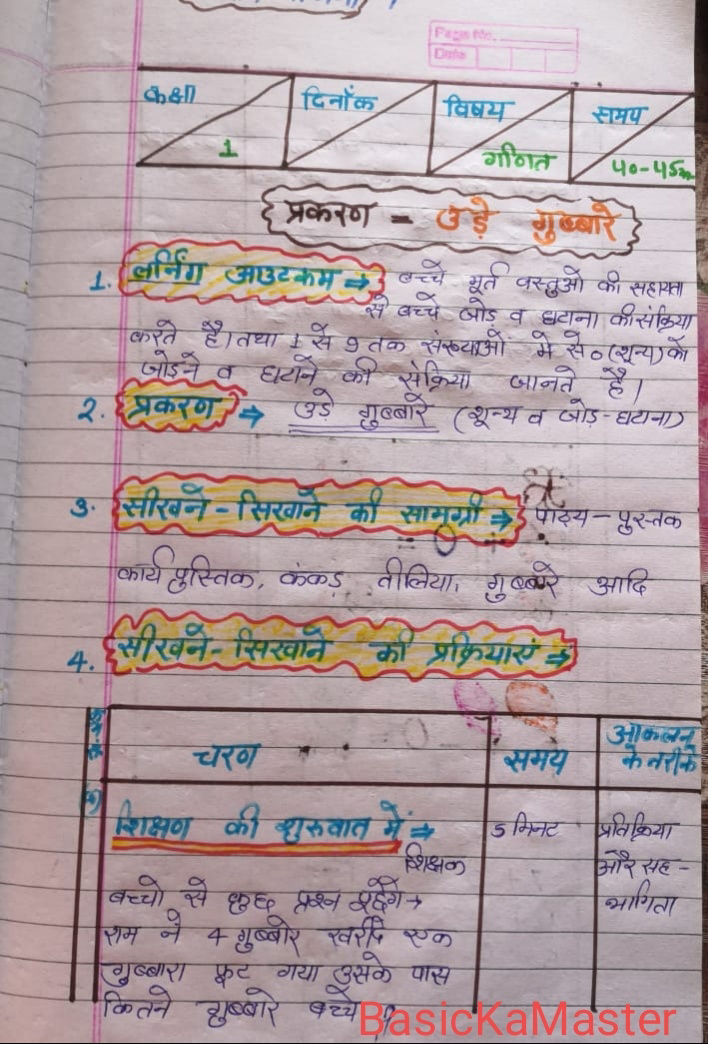 Page No.
Date
कक्षा
1
दिनाँक
विषय
गणित
समय
40-45m
प्रकरण - उड़े गुब्बारे
1. लर्निंग आउटकम ⇒ बच्चे मूर्त वस्तुओं की सहायता
से बच्चे जोड़ व घटाना की संक्रिया
करते है। तथा 1 से 9 तक संख्याओं में से 0 (शून्य) को
जोड़ने व घटाने की संक्रिया जानते है।
2. प्रकरण ⇒ उड़े गुब्बारे (शून्य व जोड़-घटाना)
3. सीखने-सिखाने की सामग्री ⇒ पाठ्य-पुस्तक
कार्य पुस्तिक, कंकड़ तीलिया, गुब्बारे आदि
4. सीखने-सिखाने की प्रक्रियाएं ⇒
चरण
समय
आकलन
के तरीके
(1)
शिक्षण की शुरुवात में ⇒
शिक्षक
बच्चो से कुछ प्रश्न पूछेंगे→
राम ने 4 गुब्बारे खरीदे एक
गुब्बारा फूट गया उसके पास
कितने गुब्बारे बच्चे ?
5 मिनट
प्रतिक्रिया
और सह-
भागिता
BasicKaMaster